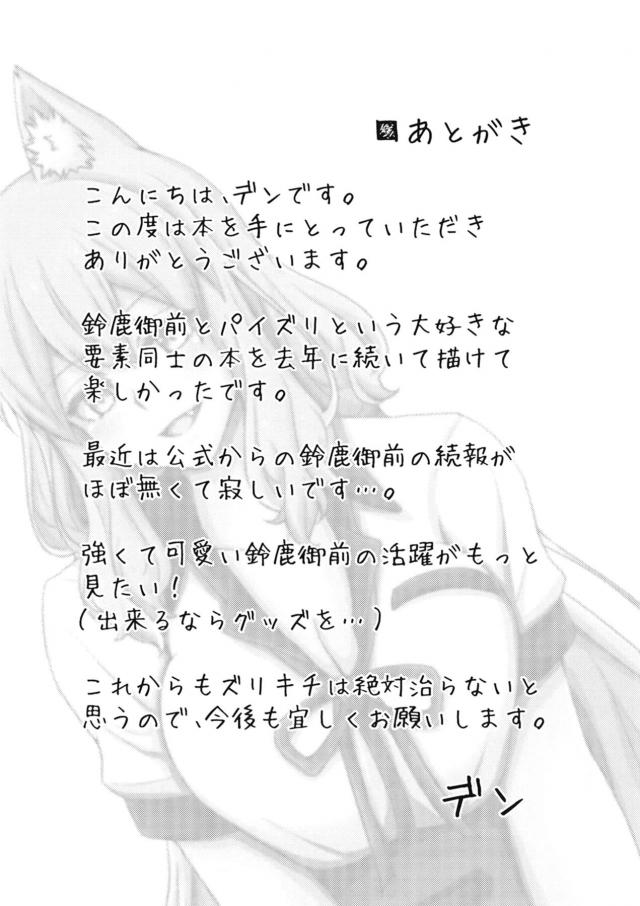 あとがき
こんにちは、デンです。
この度は本を手にとっていただき
ありがとうございます。
鈴鹿御前とパイズリという大好きな
要素同士の本を去年に続いて描けて
楽しかったです。
最近は公式からの鈴鹿御前の続報が
ほぼ無くて寂しいです…。
強くて可愛い鈴鹿御前の活躍がもっと
見たい！
(出来るならグッズを…)
これからもズリキチは絶対治らないと
思うので、今後も宜しくお願いします。
デン